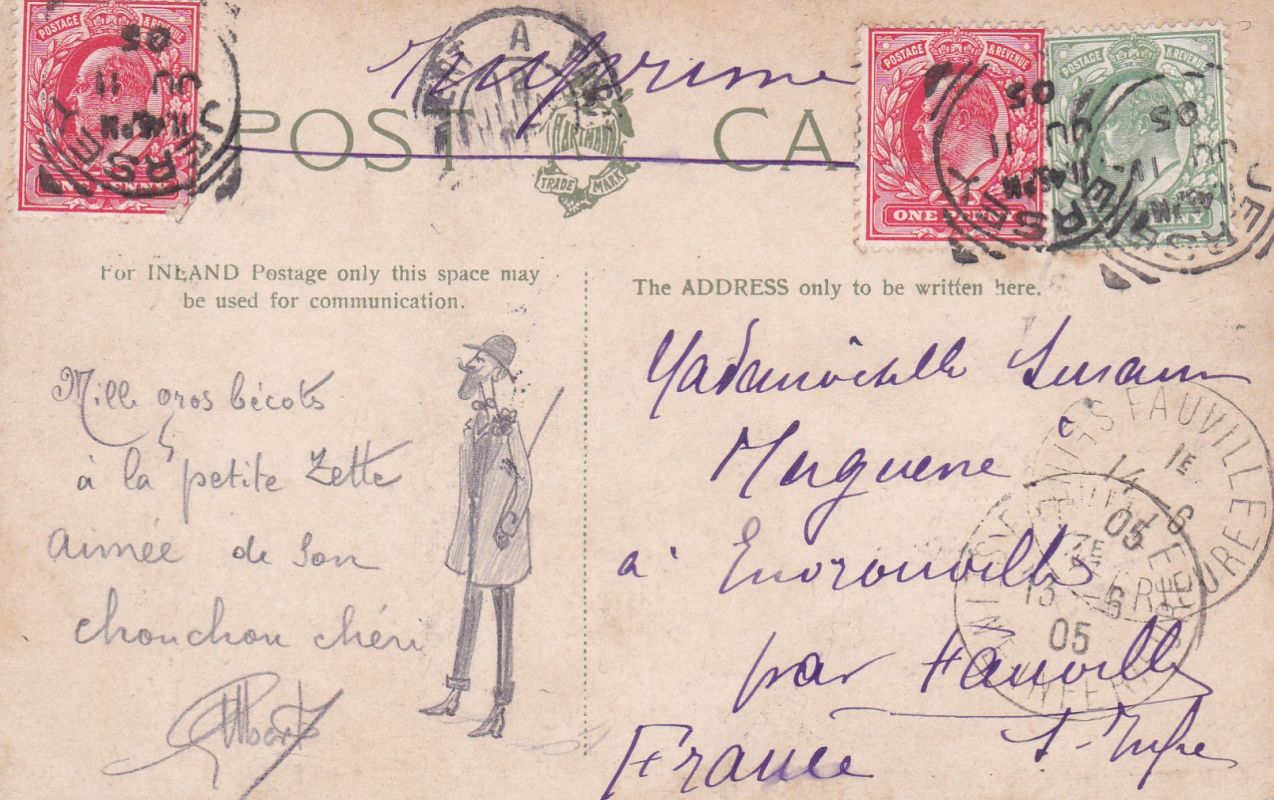 Imprimé
POST CA
HARTMANN
TRADE MARK
POSTAGE & REVENUE
ONE PENNY
JERSEY
11.45PM
JU 11
05
POSTAGE & REVENUE
ONE PENNY
JERSEY
11.45PM
JU 11
05
POSTAGE & REVENUE
JERSEY
JU 11
05
For INLAND Postage only this space may
be used for communication.
The ADDRESS only to be written here.
Mille gros bécots
à la petite Zette
aimée de son
chouchou chéri
Albert
Mademoiselle Suzanne
à Envronville
par Fauville
France
S-Infre
FAUVILLE
1E
14 6
05
13 6
05